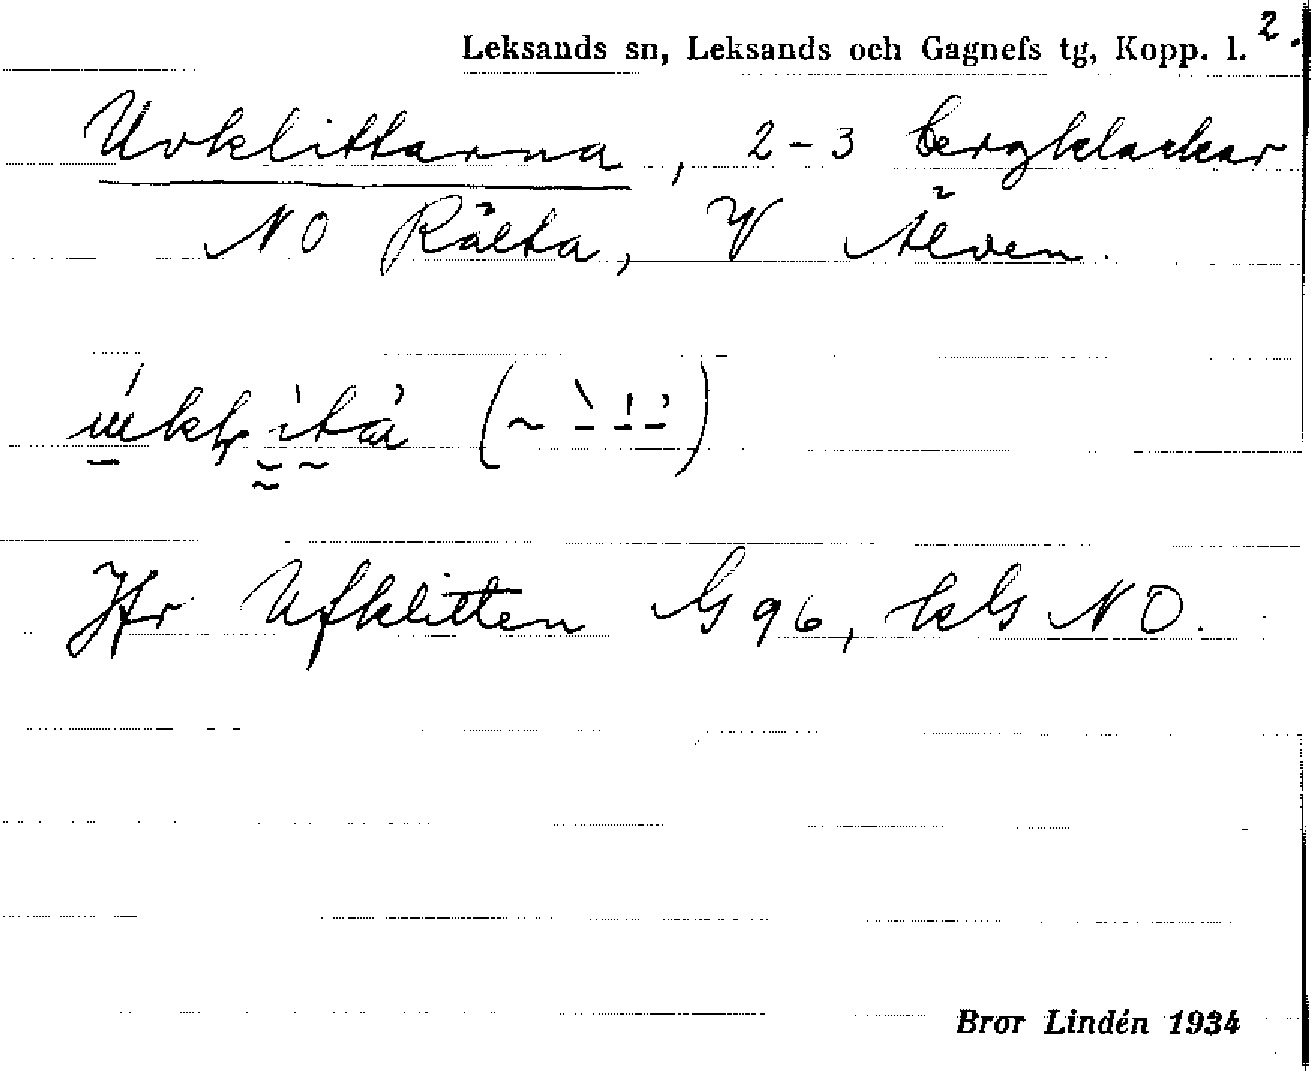 2.
Leksands sn, Leksands och Gagnefs tg, Kopp. l.
Uvklittarna, 2-3 bergklackar
NO Rälta, V Älven.
Jfr Ufklitten G 96, kbl NO.
Bror Lindén 1934